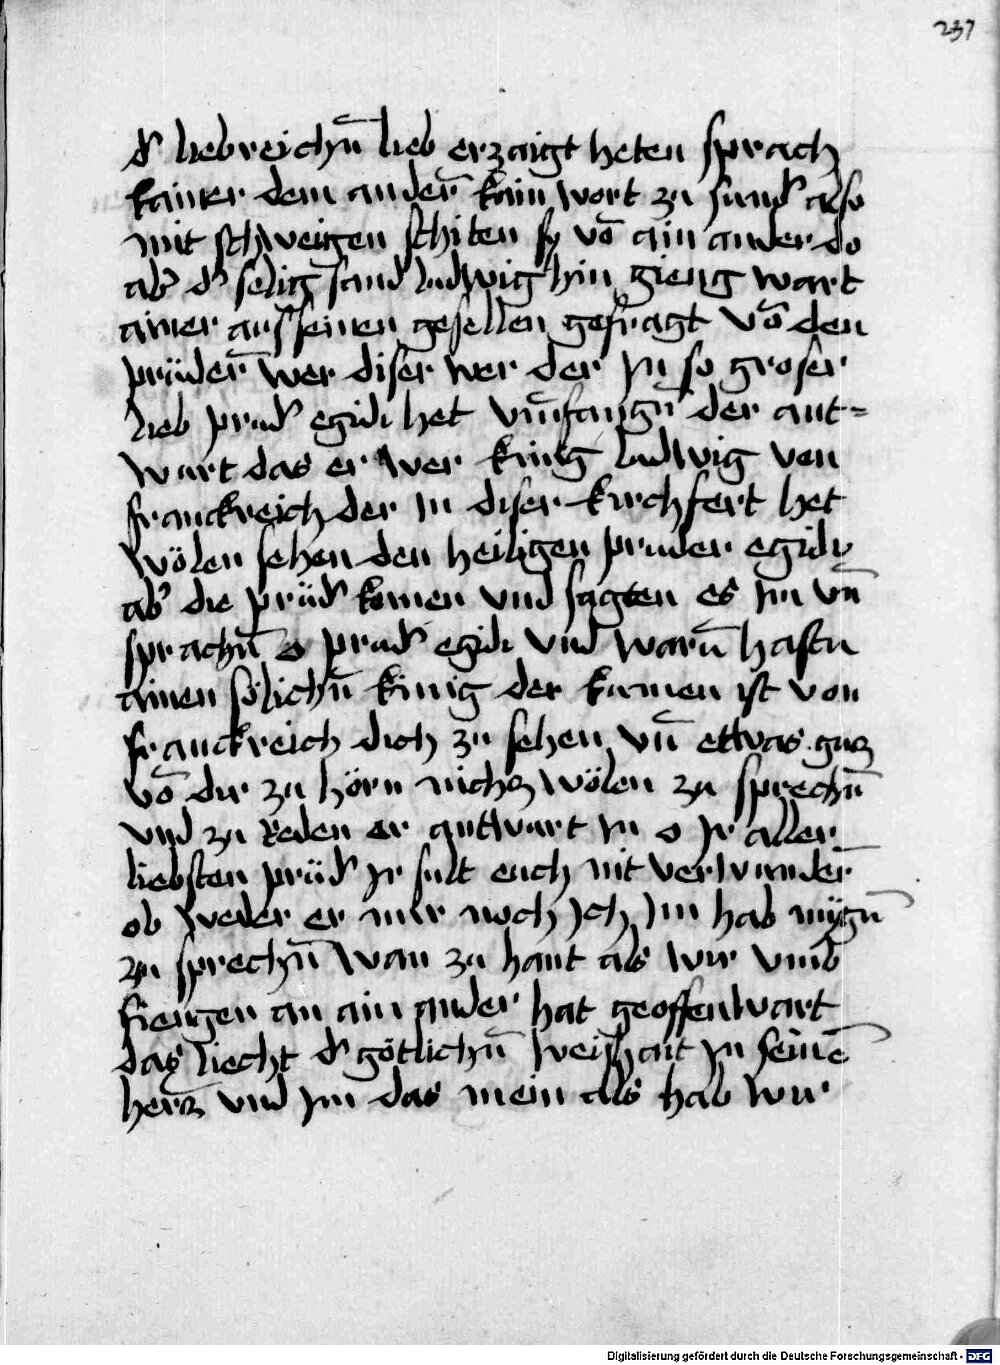 237
d' liebreichñ lieb erzaigt heten sprach
kainer dem anderñ kain wort zu sund' also
mit schweigen schiten sy võ ain ander do
ab' d' selig sand ludwig hin gieng wart
ainer aus seinen gesellen gefragt võ den
prüderñ wer diser wer der jn so groser
lieb prud' egidi het vmfangñ der ant=
wurt das er wer king ludwig von
franckreich der jn diser kirchfert het
wölen sehen den heiligen pruder egidy
ab' die prüd' komen vnd sagten es jm vñ
sprachñ o prud' egidi vnd warũ hastu
ainen sölichñ kinig der kumen ist von
franckreich dich zu sehen vñ etwas gucz
võ dir zu hörn nichcz wölen zu sprechñ
vnd zu reden er antwurt jn o jr aller
liebsten prüd' jr sult euch nit verwunderñ
ob weder er mir noch jch jm hab mügñ
zu sprechñ wan zu hant als wir vmb
fiengen an ain ander hat geoffenwart
das liecht d' götlichñ weishait jn seinẽ
hercz vnd jm das mein als hab wir
Digitalisierung gefördert durch die Deutsche Forschungsgemeinschaft - DFG